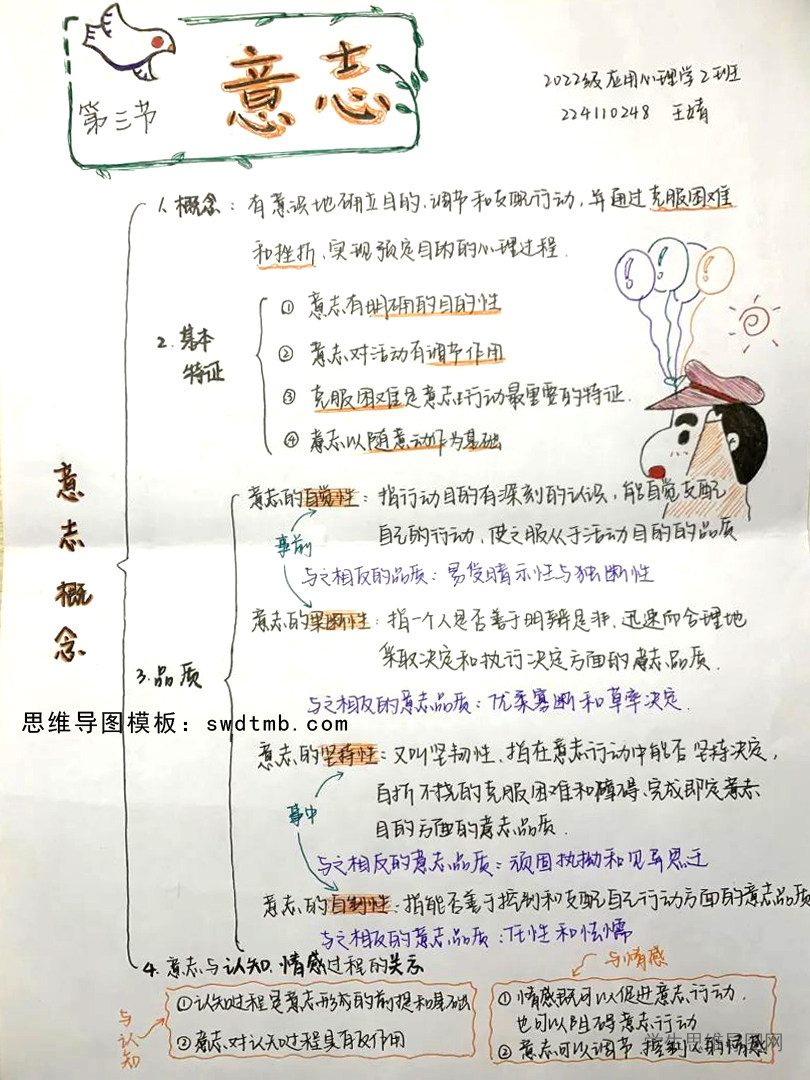 第三节
意志
2022级应用心理学2班
224110248 王婧
意志概念
1.概念：有意识地确立目的、调节和支配行动，并通过克服困难
和挫折、实现预定目的的心理过程.
2.基本
特征
① 意志有明确的目的性
② 意志对活动有调节作用
③ 克服困难是意志行动最重要的特征.
④ 意志以随意动作为基础
3.品质
意志的自觉性：指行动目的有深刻的认识，能自觉支配
自己的行动，使之服从于活动目的的品质
事前
与之相反的品质：易受暗示性与独断性
意志的果断性：指一个人是否善于明辨是非，迅速而合理地
采取决定和执行决定方面的意志品质.
与之相反的意志品质：优柔寡断和草率决定.
思维导图模板：swdtmb.com
意志的坚持性：又叫坚韧性、指在意志行动中能否坚持决定，
百折不挠的克服困难和障碍、完成即定意志
目的方面的意志品质.
事中
与之相反的意志品质：顽固执拗和见异思迁
意志的自制性：指能否善于控制和支配自己行动方面的意志品质
与之相反的意志品质：任性和怯懦
4.意志与认知、情感过程的关系
与情感
与认知
①认知过程是意志形成的前提和基础
②意志对认知过程具有反作用
①情感既可以促进意志行动.
也可以阻碍意志行动
②意志可以调节、控制人的情感
学生思维导图网